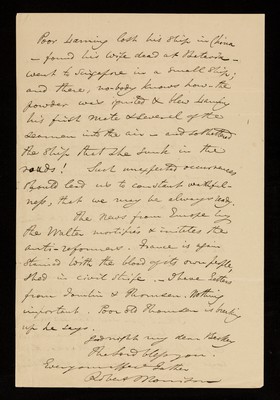 Poor Laming lost his Ship in China
– found his wife dead at Batavia –
went to Singapore in a small Ship;
and there, nobody knows how the
powder was ignited & blew Laming
his first mate & several of the
Seamen into the air – and so shattered
the Ship that She Sunk in the
roads! Such unexpected occurrences
Should lead us to constant watchful-
ness, that we may be always ready.
The news from Europe by
the Walter mortifies & irritates the
anti-reformers. France is again
stained with the blood of its own people,
shed in civil strife. – I have letters
from & Thomson. Nothing
important. Poor old Thomson is breaking
up he says.
Good night my dear
The Lord bless you.
Ever your affect. Father
Robert Morrison